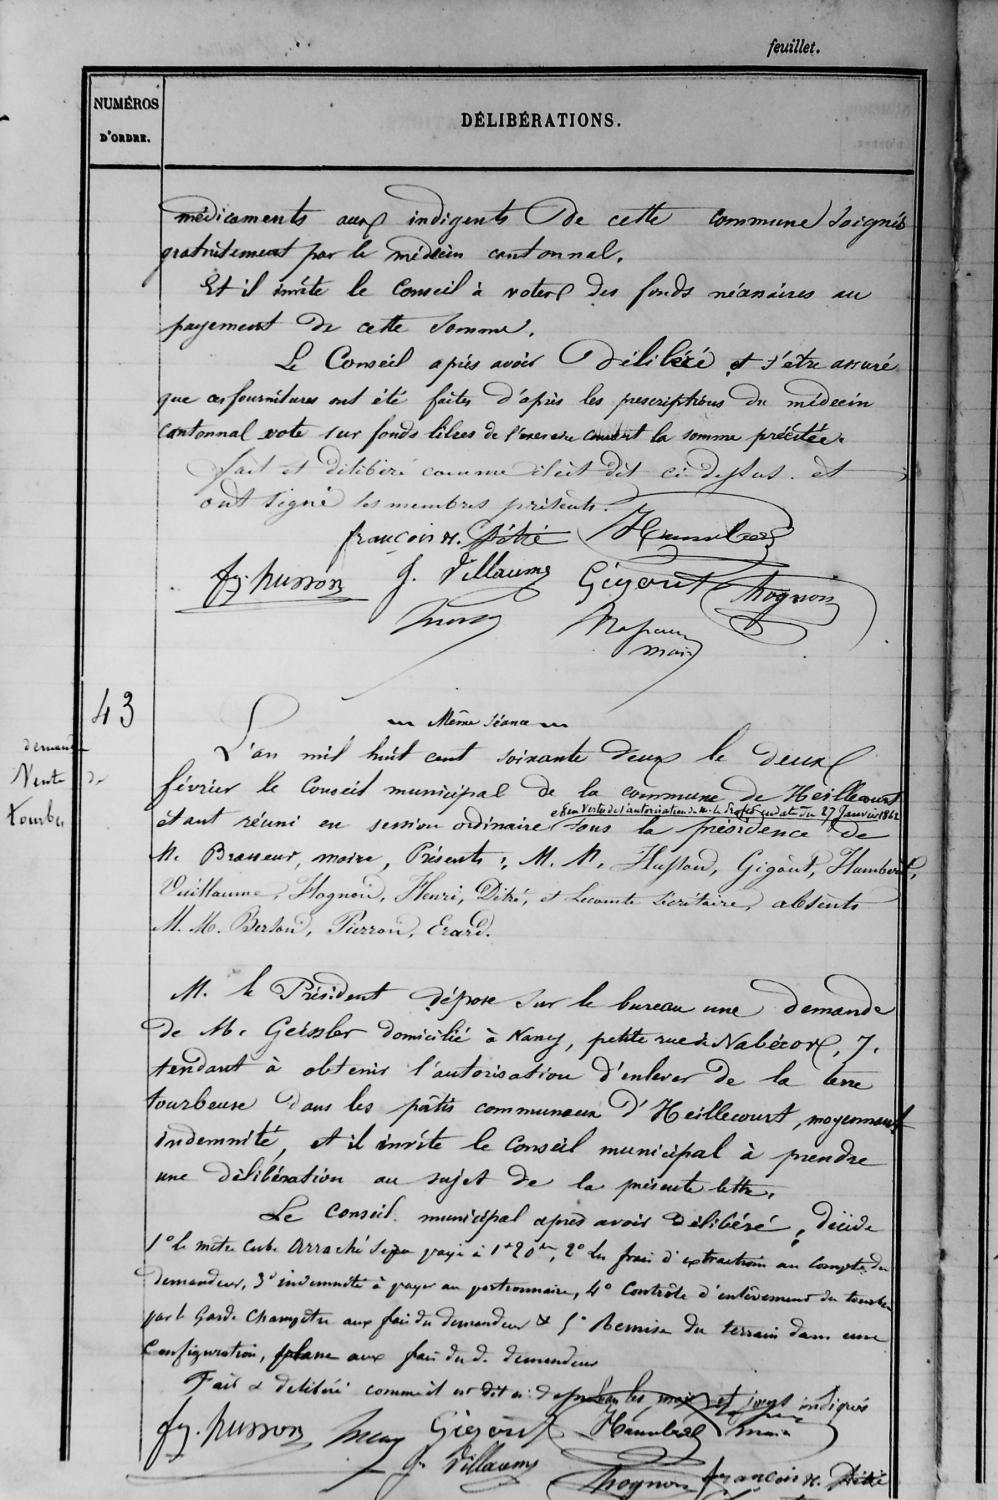 feuillet.
NUMÉROS
D'ORDRE.
DÉLIBÉRATIONS.
médicaments aux indigents de cette commune soignés
gratuitement par le médecin cantonnal.
Et il invite le Conseil à voter des fonds nécessaires au
payement de cette somme.
Le Conseil après avoir délibéré et s'être assuré
que ces fournitures ont été faites d'après les prescriptions du médecin
cantonnal vote sur fonds libres de l'exercice courant la somme précitée.
fait et délibéré comme il est dit ci-dessus et
ont signé les membres présents.
françois n. Détré Humbert
fg. husson J. Villaume Gigout Hognon
maire
43
Même séance
demande
Vente de
tourbe
L'an mil huit cent soixante deux le deux
février le Conseil municipal de la commune de Heillecourt
et en vertu de l'autorisation de M. le Préfet en date du 27 Janvier 1862
étant réuni en session ordinaire sous la présidence de
M. Brasseur, maire, Présents : M. M. Husson, Gigout, Humbert,
Vuillaume, Hognon, Henri, Détré, et Lecomte Sécrétaire, absents
M. M. Berson, Pierron, Erard.
M. le Président dépose sur le bureau une demande
de M. Geissler domicilié à Nancy, petite rue de Nabécor, 7.
tendant à obtenir l'autorisation d'enlever de la terre
tourbeuse dans les pâtis communaux d'Heillecourt, moyennant
indemnité, et il invite le Conseil municipal à prendre
une délibération au sujet de la présente lettre.
Le Conseil municipal après avoir délibéré, décide
1° le mètre cube arraché sera payé à 1f 20c, 2° les frais d'extraction au compte du
demandeur, 3° indemnité à payer au portionnaire, 4° Contrôle d'enlèvement des tourbes
par le Garde Champêtre aux frais du demandeur & 5° Remise du terrain dans une
Configuration, plane aux frais du d. demandeur
Fait & délibéré comme il est dit ci-dessus les mois et jours indiqués
fg. husson Gigout Humbert maire
J. Villaume Hognon françois n. Détré